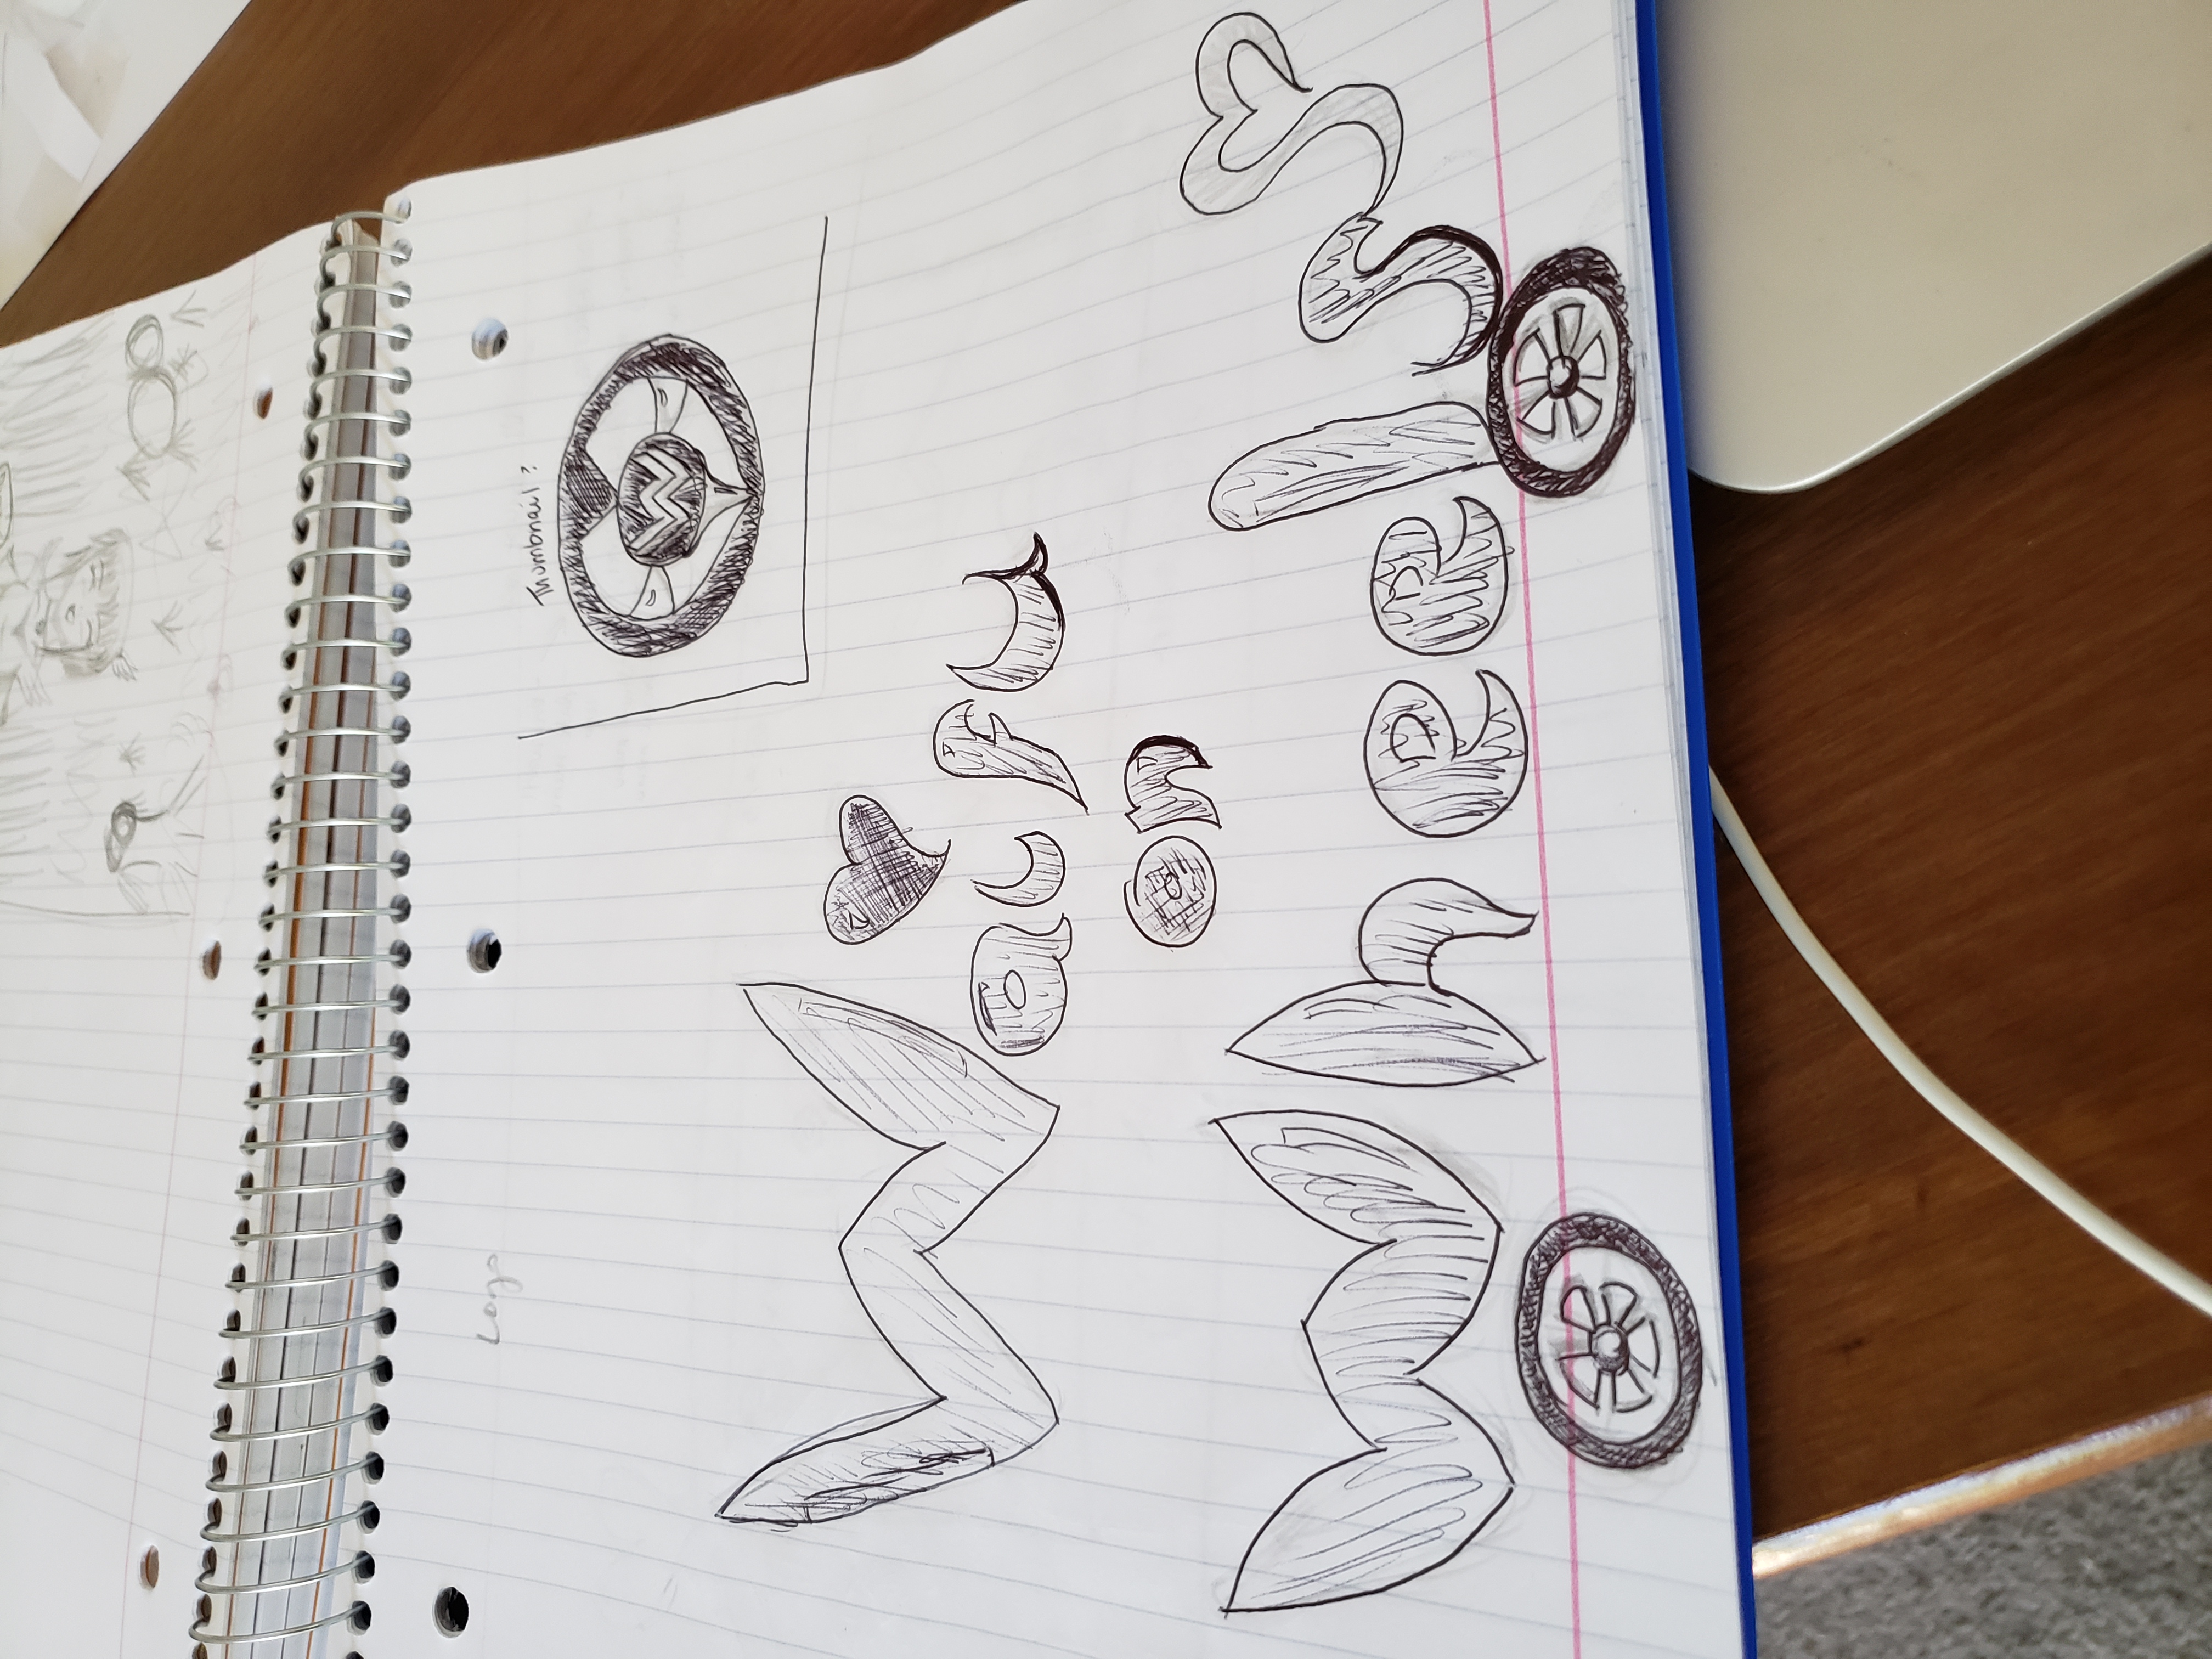 Logo
Thumbnail?
W
Waifu
on
Wheels